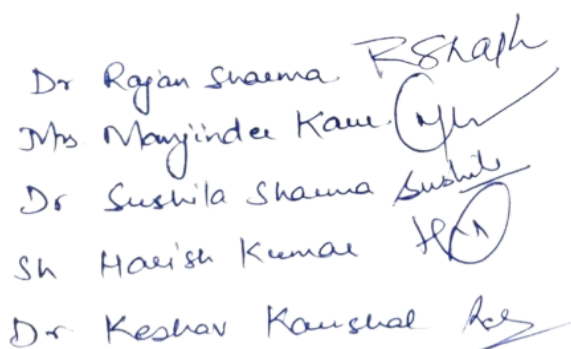 Dr Rajan Sharma
Mrs Manjinder Kaur
Dr Sushila Sharma Sushila
Sh Harish Kumar
Dr Keshav Kaushal